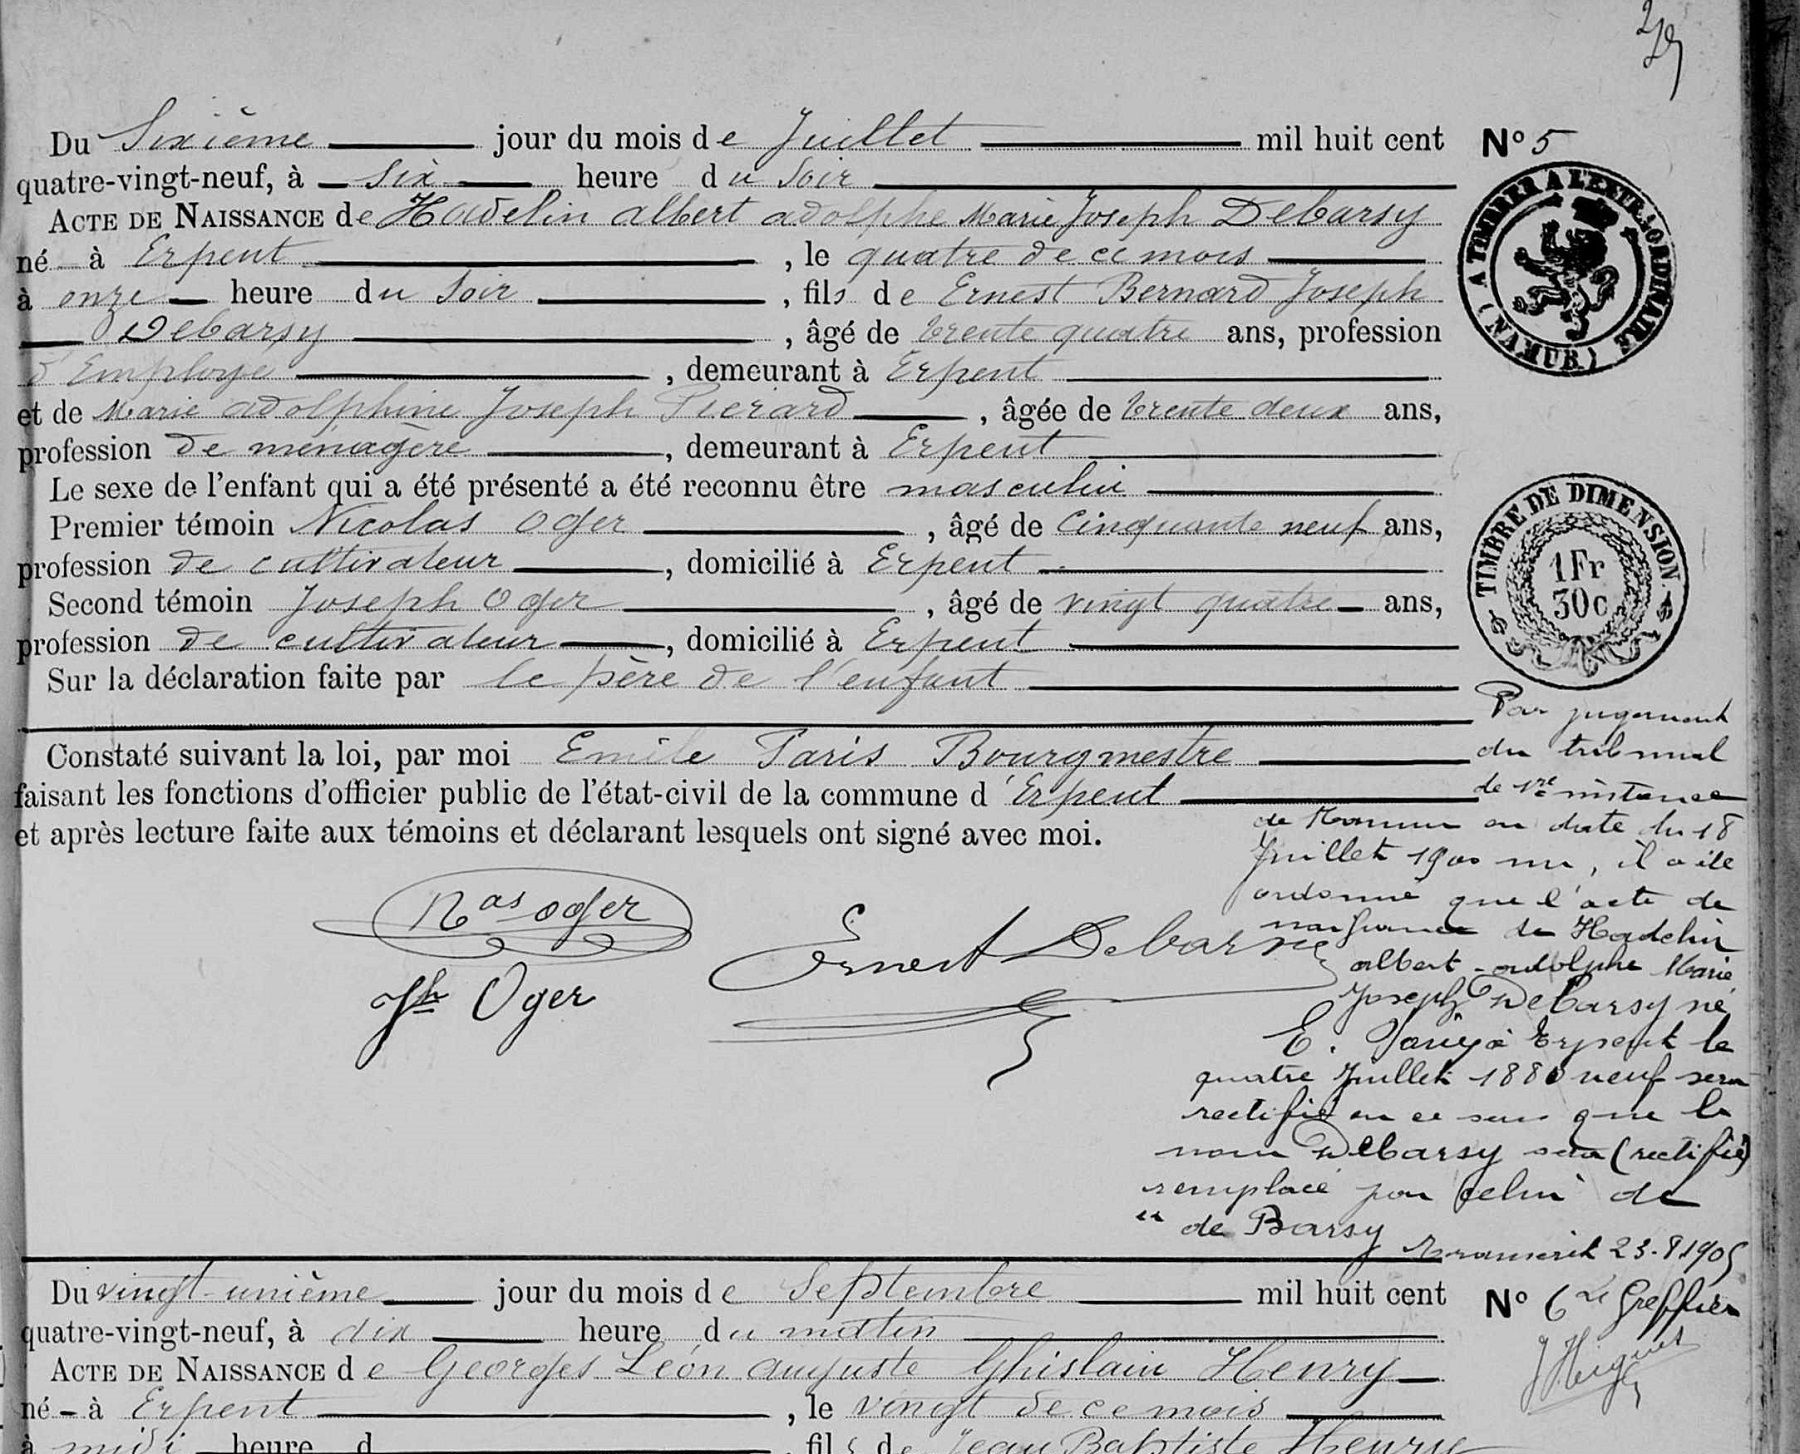 Du Sixième jour du mois de Juillet mil huit cent
quatre-vingt-neuf, à six heure du Soir
ACTE DE NAISSANCE de Hadelin albert adolphe Marie Joseph Debarsy
né à Erpent, le quatre de ce mois
à onze heure du Soir, fils de Ernest Bernard Joseph
Debarsy, âgé de trente quatre ans, profession
d'Employé, demeurant à Erpent
et de Marie adolphine Joseph Pierard, âgée de trente deux ans,
profession de ménagère, demeurant à Erpent
Le sexe de l'enfant qui a été présenté a été reconnu être masculin
Premier témoin Nicolas Oger, âgé de Cinquante neuf ans,
profession de cultivateur, domicilié à Erpent
Second témoin Joseph Oger, âgé de vingt quatre ans,
profession de cultivateur, domicilié à Erpent
Sur la déclaration faite par le père de l'enfant
Constaté suivant la loi, par moi Emile Paris Bourgmestre
faisant les fonctions d'officier public de l'état-civil de la commune d'Erpent
et après lecture faite aux témoins et déclarant lesquels ont signé avec moi.
Nas Oger
Jh Oger
Ernest Debarsy
E. Paris
No 5
(A TIMBRER A L'EXTRAORDINAIRE
(NAMUR)
TIMBRE DE DIMENSION
1 Fr
30 c
Par jugement
du tribunal
de 1re instance
de Namur en date du 18
Juillet 1900 , il a été
ordonné que l'acte de
naissance de Hadelin
albert-adolphe Marie
Joseph Debarsy né
à Erpent le
quatre Juillet 1880 neuf sera
rectifié en ce sens que le
nom Debarsy sera (rectifié)
remplacé par celui de
" de Barsy
23-8 1905
Le Greffier
Du vingt-unième jour du mois de Septembre mil huit cent
No 6
quatre-vingt-neuf, à dix heure du matin
ACTE DE NAISSANCE de Georges Léon auguste Ghislain Henry
né à Erpent, le vingt de ce mois
à midi heure d, fils de Jean Baptiste Henry